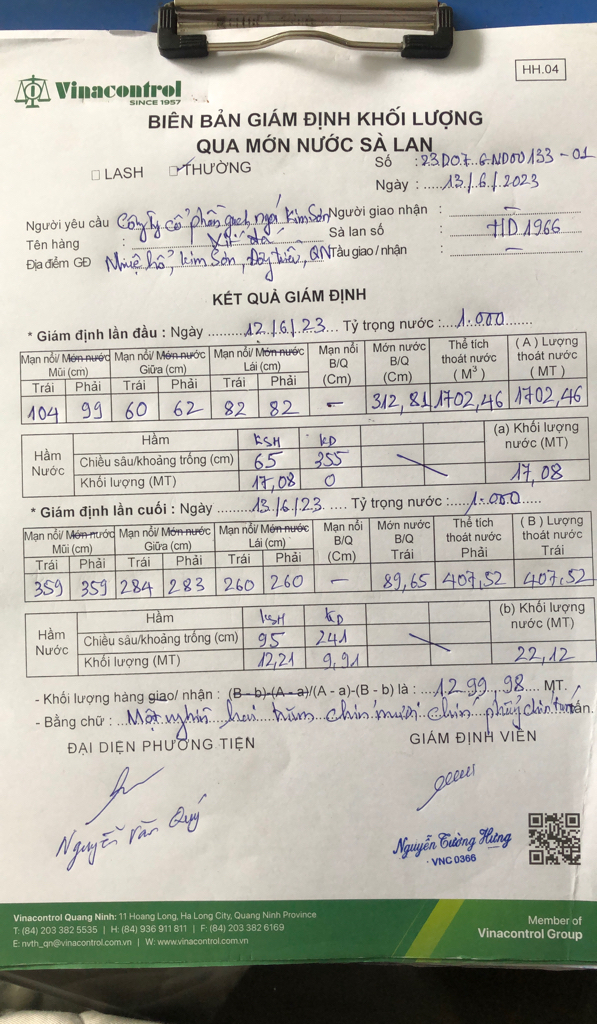 Vinacontrol
SINCE 1957
HH.04
BIÊN BẢN GIÁM ĐỊNH KHỐI LƯỢNG
QUA MỚN NƯỚC SÀ LAN
□ LASH □ THƯỜNG
Số : 23D07GND00133-01
Ngày : 13/6/2023
Người yêu cầu Công ty cổ phần gạch ngói Kim Sơn Người giao nhận : –
Tên hàng : Xít đá Sà lan số : HD 1966
Địa điểm GĐ Nhuệ hổ, Kim Sơn, Đông Triều, QN Tầu giao / nhận : –
KẾT QUẢ GIÁM ĐỊNH
* Giám định lần đầu : Ngày 12/6/23 Tỷ trọng nước : 1.000
Mạn nổi/ Mớn nước Mũi (cm) Mạn nổi/ Mớn nước Giữa (cm) Mạn nổi/ Mớn nước Lái (cm) Mạn nổi B/Q (Cm) Mớn nước B/Q (Cm) Thể tích thoát nước ( M³ ) ( A ) Lượng thoát nước ( MT )
Trái Phải Trái Phải Trái Phải
104 99 60 62 82 82 – 312,81 1702,46 1702,46
Hầm Nước Hầm KSH KD (a) Khối lượng nước (MT)
Chiều sâu/khoảng trống (cm) 65 355
Khối lượng (MT) 17,08 0 17,08
* Giám định lần cuối : Ngày 13/6/23 Tỷ trọng nước : 1.000
Mạn nổi/ Mớn nước Mũi (cm) Mạn nổi/ Mớn nước Giữa (cm) Mạn nổi/ Mớn nước Lái (cm) Mạn nổi B/Q (Cm) Mớn nước B/Q Trái Thể tích thoát nước Phải ( B ) Lượng thoát nước Trái
Trái Phải Trái Phải Trái Phải
359 359 284 283 260 260 – 89,65 407,52 407,52
Hầm Nước Hầm KSH KD (b) Khối lượng nước (MT)
Chiều sâu/khoảng trống (cm) 95 241
Khối lượng (MT) 12,21 9,91 22,12
- Khối lượng hàng giao/ nhận : (B - b)-(A - a)/(A - a)-(B - b) là : 1299,98 MT.
- Bằng chữ : Một nghìn hai trăm chín mươi chín phẩy chín tám tấn.
ĐẠI DIỆN PHƯƠNG TIỆN GIÁM ĐỊNH VIÊN
Nguyễn Văn Quý
Nguyễn Tường Hưng
VNC 0366
Vinacontrol Quang Ninh: 11 Hoang Long, Ha Long City, Quang Ninh Province
T: (84) 203 382 5535 | H: (84) 936 911 811 | F: (84) 203 382 6169
E: nvth_qn@vinacontrol.com.vn | W: www.vinacontrol.com.vn
Member of
Vinacontrol Group